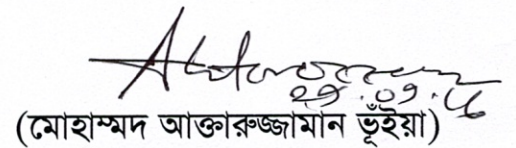 ২৯.০৭.১৬
(মোহাম্মদ আক্তারুজ্জামান ভূঁইয়া)